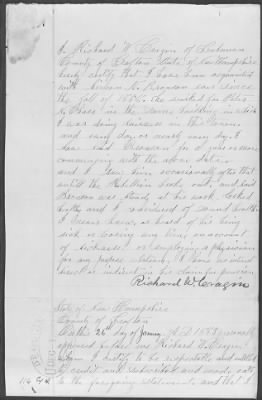 I Richard W. Cragin of Lebanon
County of Grafton State of New Hampshire
hereby certify that I have been acquainted
with M. Bronson ever since
the fall of 1856. He worked for
in the same building in which
I was doing business in the
and saw day or nearly every day. I
saw said Bronson for 2 years or more
commencing with the above date
and I saw him occasionally after that
untill the Rebellion broke out, and said
Bronson was steady at his work, looked
healthy and I considered of sound health.
I never knew, or heard of his being
sick or loosing any time, on account
of sickness or employing a physician
for any purpose whatever. I have no interest
direct or indirect in his claim for pension
Richard W Cragin
State of New Hampshire
County of Grafton
On this 26th day of A.D. 1883 personally
appeared before me Richard W Cragin
whom I certify to be respectable and entitled
to credit and and made oath
to the foregoing statements and that I